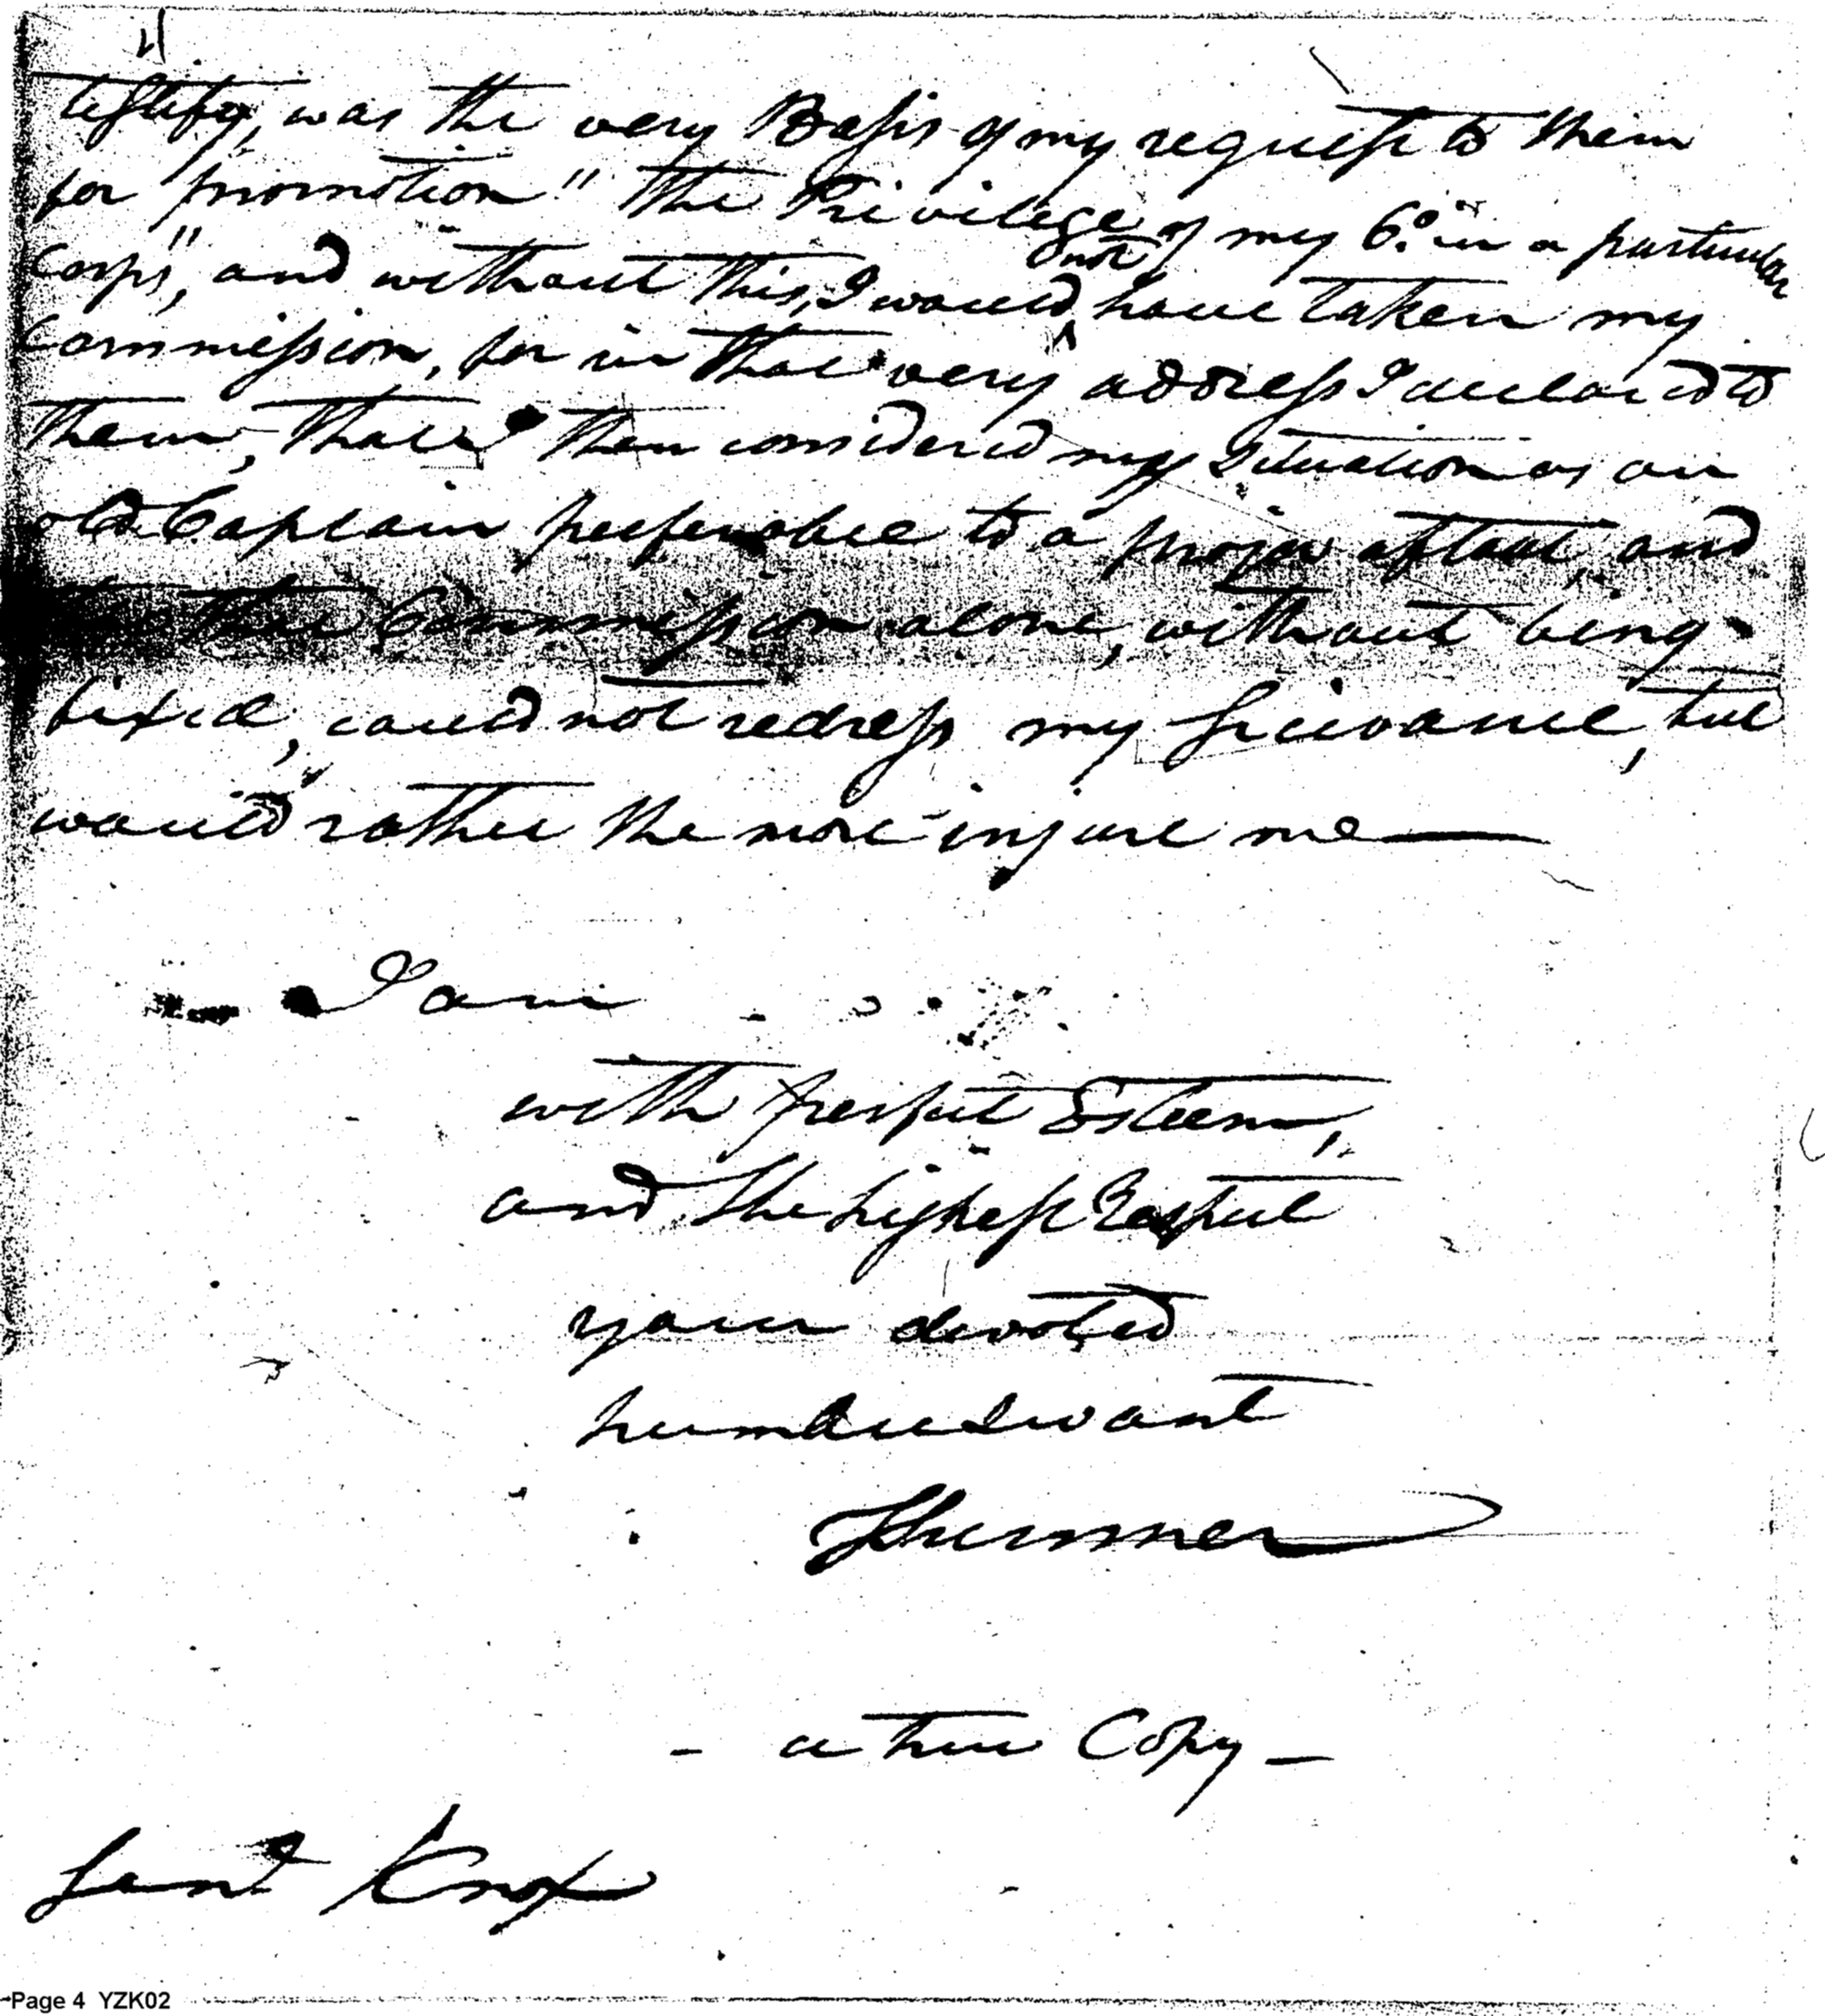 testify, was the very Basis of my request to them
for promotion" the Privilege of my Co. in a particular
Corps", and without this, I would not have taken my
Commission, for in that very address I declared to
them, that I then considered my Situation as an
old Captain preferable to a Major afloat, and
that this Commission alone, without being
fixed, could not redress my Grievance, but
would rather the more injure me —
I am
with perfect Esteem,
and the highest Respect
your devoted
humble Servant
- a true Copy -
Genl Knox
Page 4 YZK02